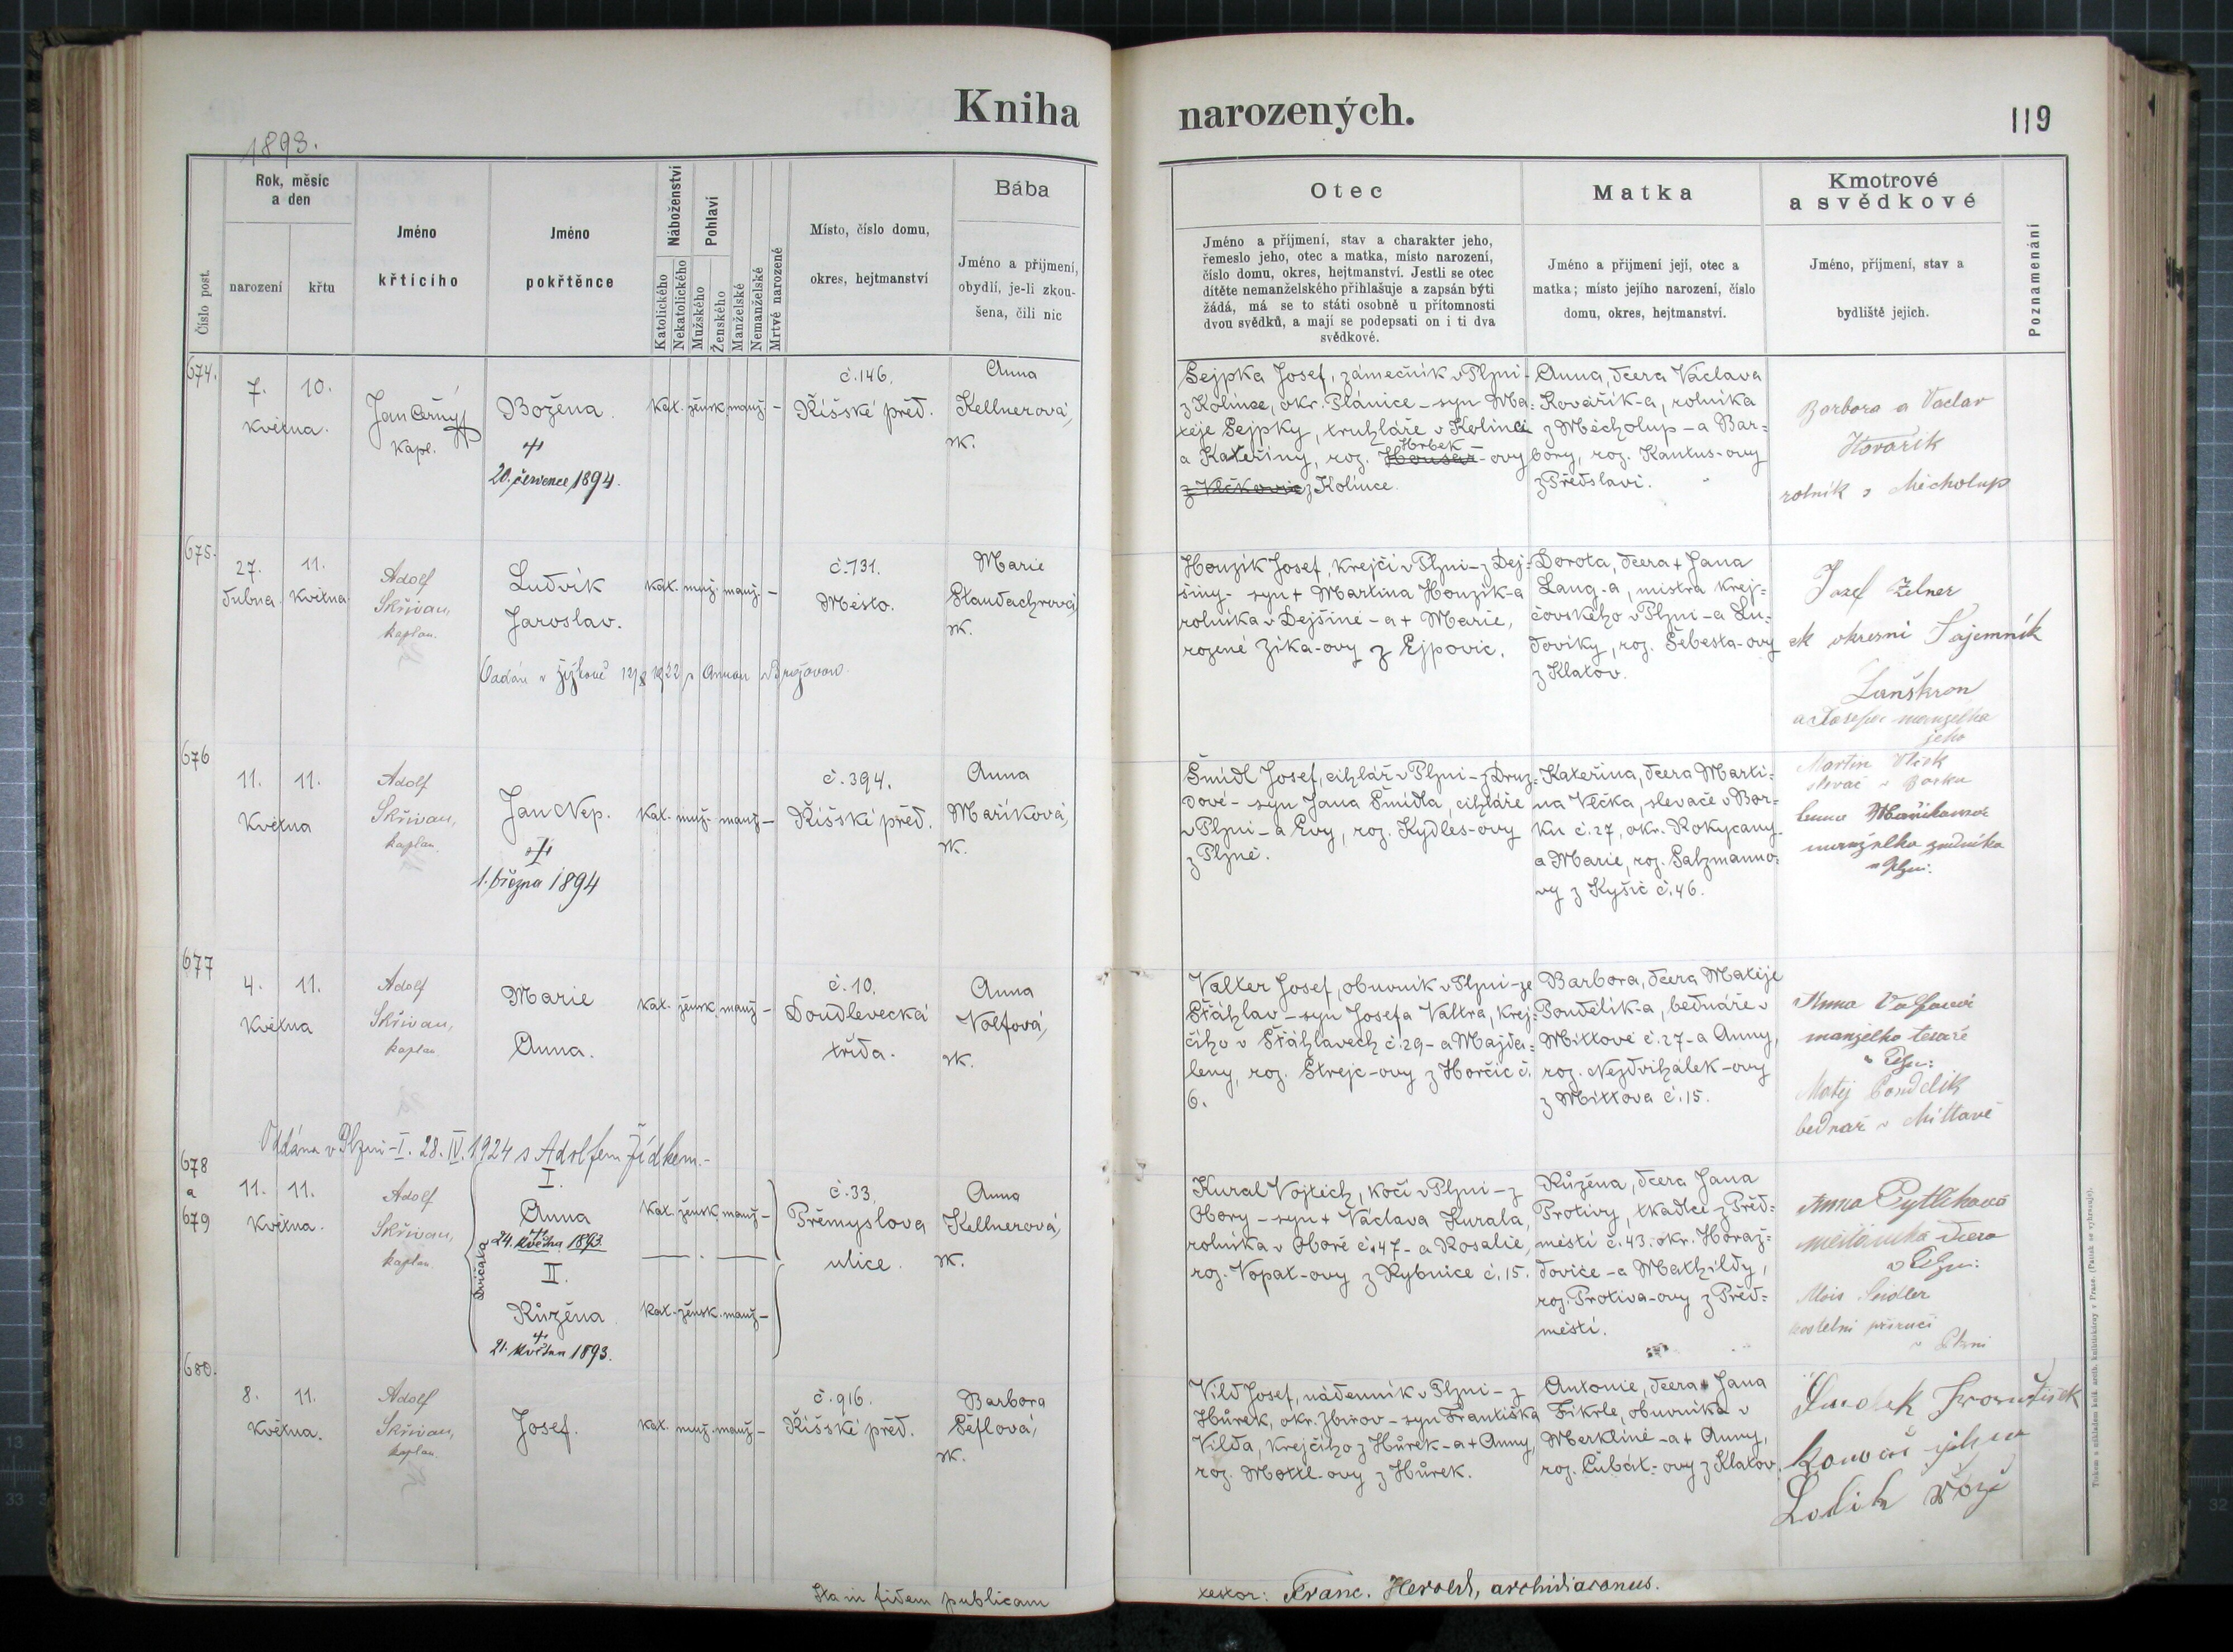 Kniha
narozených.
119
1893.
Číslo post.
Rok, měsíc
a den
narození
křtu
Jméno
křtícího
Jméno
pokřtěnce
Náboženství
Katolického
Nekatolického
Pohlaví
Mužského
Ženského
Manželské
Nemanželské
Mrtvě narozené
Místo, číslo domu,
okres, hejtmanství
Bába
Jméno a příjmení,
obydlí, je-li zkou-
šena, čili nic
Otec
Jméno a příjmení, stav a charakter jeho,
řemeslo jeho, otec a matka, místo narození,
číslo domu, okres, hejtmanství. Jestli se otec
dítěte nemanželského přihlašuje a zapsán býti
žádá, má se to státi osobně u přítomnosti
dvou svědků, a mají se podepsati on i ti dva
svědkové.
Matka
Jméno a příjmení její, otec a
matka; místo jejího narození, číslo
domu, okres, hejtmanství.
Kmotrové
a svědkové
Jméno, příjmení, stav a
bydliště jejich.
Poznamenání
674.
7. 10.
května.
Jan Černý
kapl.
Božena.
20. července 1894.
kat. žensk. manž. –
č. 146.
Říšské před.
Anna
Kellnerová,
zk.
Sejpka Josef, zámečník v Plzni –
z Kolince, okr. Plánice – syn Ma-
těje Sejpky, truhláře v Kolinci
a Kateřiny, roz. Houser-ovy
Hrbek –
z Vlčkovic z Kolince.
Anna, dcera Václava
Kovařík-a, rolníka
z Měcholup – a Bar-
bory, roz. Kantus-ovy
z Předslavi.
Barbora a Vaclav
Kovařik
rolník z Měcholup
675.
27. 11.
dubna. května
Adolf
Skřivan,
kaplan.
Ludvík
Jaroslav.
kat. muž. manž. –
č. 131.
Město.
Marie
Staudachrová,
zk.
1922 s Annou
Houzík Josef, krejčí v Plzni – z Dej-
šiny – syn + Martina Houzík-a
rolníka v Dejšině – a + Marie,
rozené Zíka-ovy z Ejpovic.
Dorota, dcera + Jana
Lang-a, mistra krej-
čovského v Plzni – a Lu-
doviky, roz. Šebesta-ovy
z Klatov.
Josef Zelner
ck okresni Tajemník
Lanškron
a Josefa manzelka
jeho
676
11. 11.
Května
Adolf
Skřivan,
kaplan.
Jan Nep.
1. března 1894
kat. muž. manž. –
č. 394.
Říšské před.
Anna
Maříková,
zk.
Šmídl Josef, cihlář v Plzni – z Druz-
dové – syn Jana Šmídla, cihláře
v Plzni – a Evy, roz. Kydles-ovy
z Plzně.
Kateřina, dcera Marti-
na Vlčka, slevače v Bor-
ku č. 27, okr. Rokycany
a Marie, roz. Salzmanno-
vy z Kyšic č. 46.
Martin Vlček
slevač v Borku
Maříkova
manželka zedníka
v Plzni.
677
4. 11.
Května
Adolf
Skřivan,
kaplan.
Marie
Anna.
kat. žensk. manž. –
č. 10.
Doudlevecká
třída.
Anna
Volfová,
zk.
Valter Josef, obuvník v Plzni – ze
Šťáhlav – syn Josefa Valtra, krej-
čího v Šťáhlavech č. 29 – a Majda-
leny, roz. Štrejc-ovy z Horčic č.
6.
Barbora, dcera Matěje
Poudělík-a, bednáře v
Mítově č. 27 – a Anny,
roz. Nezdvihálek-ovy
z Mítova č. 15.
Anna Volfová
manzelka tesaře
v Plzni:
Matěj Poudelik
bednář v Mítově
Oddána v Plzni-I. 28. IV. 1924 s Adolfem Žídkem. –
678
a
679
11. 11.
Května.
Adolf
Skřivan,
kaplan.
Dvičátka
I.
Anna
24. května 1893.
II.
Růžena
21. května 1893.
kat. žensk. manž. –
kat. žensk. manž. –
č. 33.
Přemyslova
ulice.
Anna
Kellnerová,
zk.
Kural Vojtěch, kočí v Plzni – z
Obory – syn + Václava Kurala,
rolníka v Oboře č. 47 – a Rosalie,
roz. Vopat-ovy z Rybnice č. 15.
Růžena, dcera Jana
Protivy, tkadlce z Před-
městí č. 43. okr. Horaž-
dovice – a Mathildy,
roz. Protiva-ovy z Před-
městí.
Anna Pytlikova
měšťanska dcera
v Plzni:
Alois Seidler
kostelni přiručí
v Plzni
680.
8. 11.
května.
Adolf
Skřivan,
kaplan.
Josef.
kat. muž. manž. –
č. 916.
Říšské před.
Barbora
Šeflová,
zk.
Vild Josef, nádenník v Plzni – z
Hůrek, okr. Zbirov – syn Františka
Vilda, krejčího z Hůrek – a + Anny,
roz. Mottl-ovy z Hůrek.
Antonie, dcera Jana
Fikrle, obuvníka v
Merklíně – a + Anny,
roz. Čubát-ovy z Klatov.
František
Sta in fidem publicam
testor: Franc. Herold, archidiaconus.